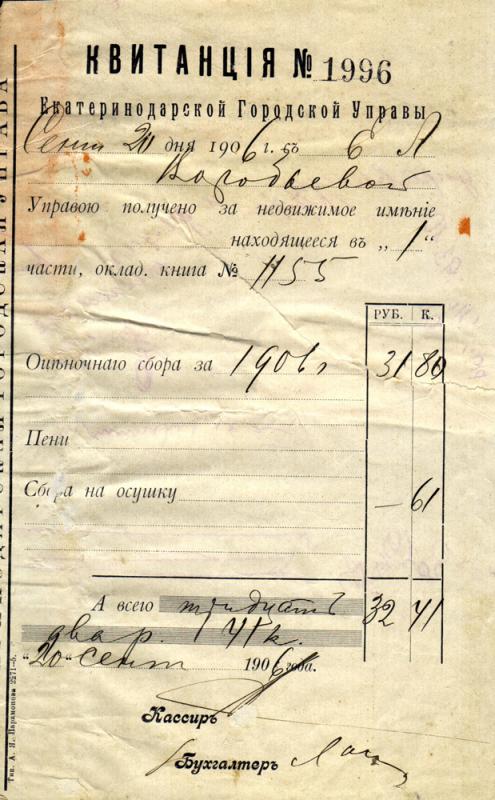 КВИТАНЦІЯ № 1996
Екатеринодарской Городской Управы
Сент 20 дня 1906 г. съ Е А
Воробьевой
Управою получено за недвижимое имѣніе
находящееся въ „1“
части, оклад. книга № 1155
РУБ. К.
Оцѣночнаго сбора за 1906 г 31 80
Пени
Сбора на осушку — 61
А всего тридцать 32 41
два р. 41 к.
„20“ сент 1906 года.
Кассиръ
Бухгалтеръ
ГОРОДСКАЯ УПРАВА
Тип. А. Я. Парамонова 2271—5.